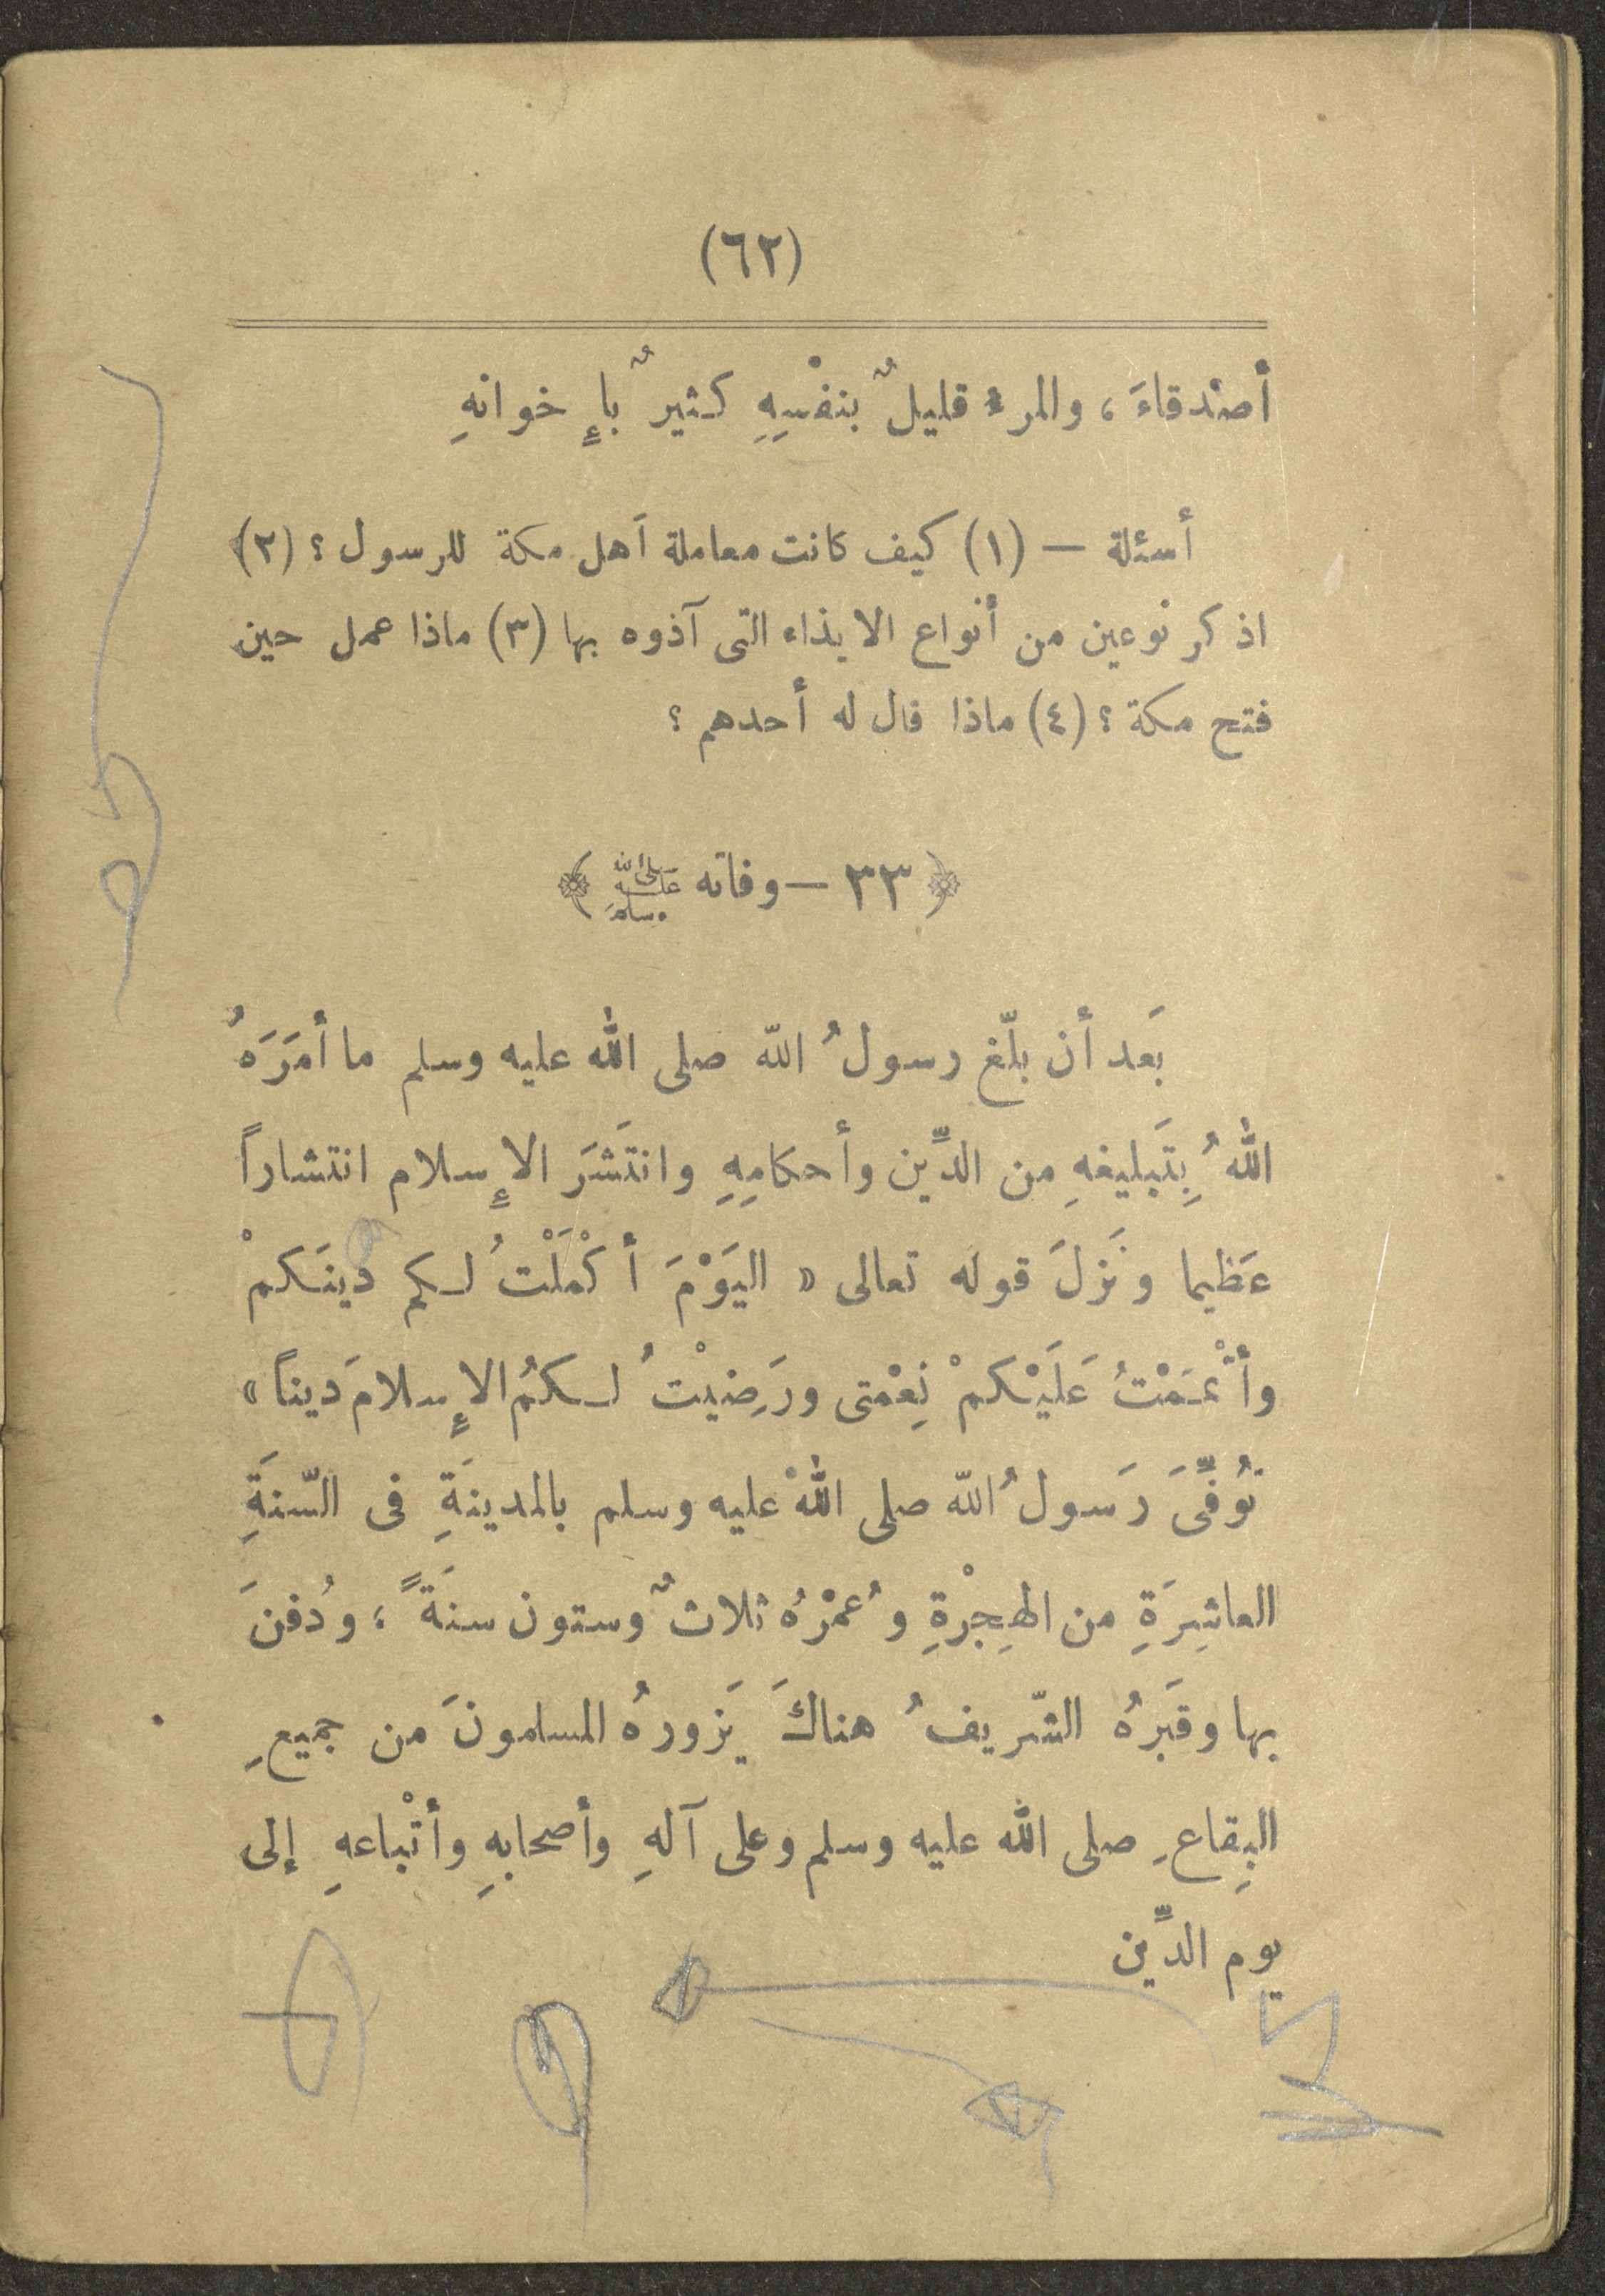 (٦٢)
أصْدقاءَ، والمرء قليلٌ بنفْسِهِ كثيرٌ بإِخوانهِ
أسئلة — (١) كيف كانت معاملة أهل مكة للرسول ؟ (٢)
اذكر نوعين من أنواع الايذاء التى آذوه بها (٣) ماذا عمل حين
فتح مكة ؟ (٤) ماذا قال له أحدهم ؟
﴿ ٣٣ — وفاته ﷺ ﴾
بَعد أن بلّغ رسولُ اللّه صلى الله عليه وسلم ما أمَرَهُ
اللهُ بِتَبليغهِ من الدِّين وأحكامِهِ وانتَشَرَ الإِسلام انتشاراً
عَظيما ونَزلَ قوله تعالى « اليَوْمَ أكْمَلْتُ لكم دينَكمْ
وأتْممَْتُ عَلَيْكمْ نِعْمْتى ورَضِيْتُ لكمُ الإِسلامَ ديناً »
تُوُفِّىَ رَسولُ اللّه صلى اللهْ عليه وسلم بالمدينَةِ فى السّنةَِ
العاشِرَةِ من الهِجْرةِ وعُمْرُهُ ثلاثٌ وستون سنَةً ؛ ودُفنَ
بها وقَبرُهُ الشّريفُ هناكَ يَزورهُ المسلمونَ من جميعِ
البِقاعِ صلى الله عليه وسلم وعلى آلهِ وأصحابهِ وأتْباعهِ إلى
يوم الدِّين